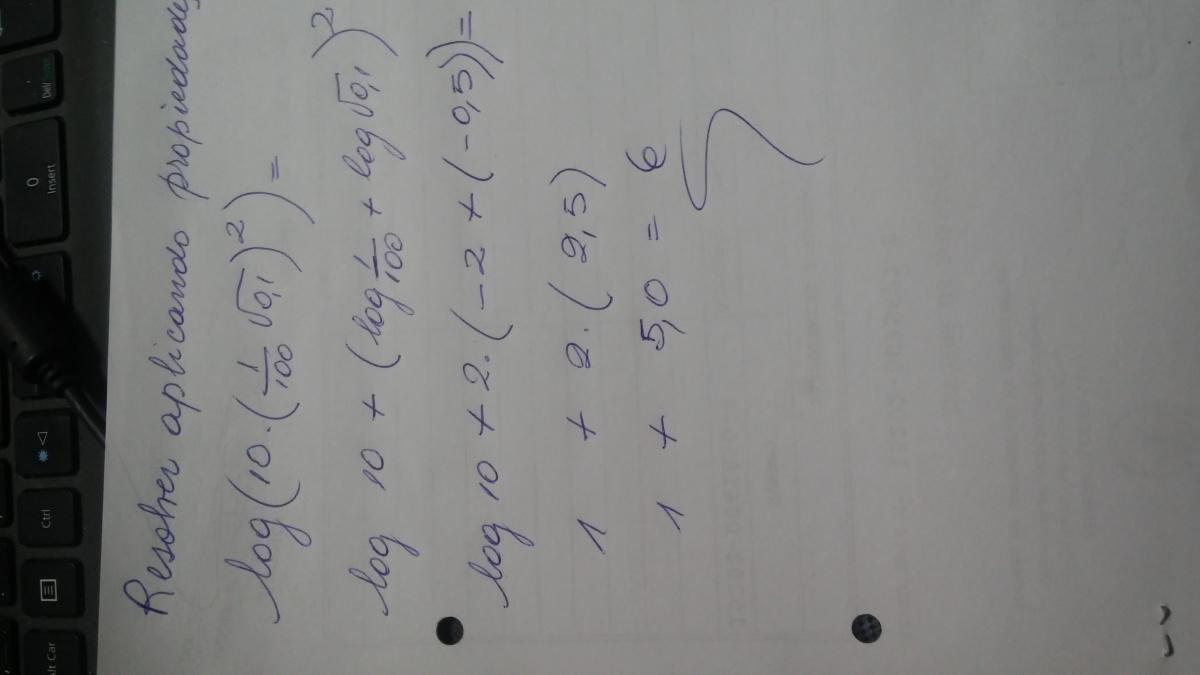 Resolver aplicando propiedades
log(10·(1/100 √0,1)²)=
log 10 + (log 1/100 + log √0,1)²
log 10 + 2·(-2 + (-0,5))=
1 + 2·(2,5)
1 + 5,0 = 6
Del
Insert
0
Ctrl
Alt Car